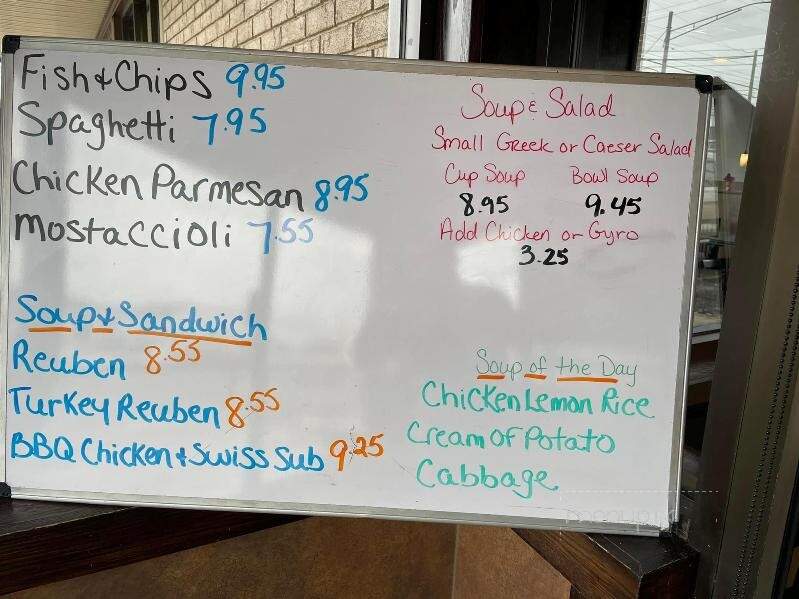 Fish & Chips 9.95
Spaghetti 7.95
Chicken Parmesan 8.95
Mostaccioli 7.55
Soup & Sandwich
Reuben 8.55
Turkey Reuben 8.55
BBQ Chicken & Swiss Sub 9.25
Soup & Salad
Small Greek or Caeser Salad
Cup Soup Bowl Soup
8.95 9.45
Add Chicken or Gyro
3.25
Soup of the Day
Chicken Lemon Rice
Cream of Potato
Cabbage